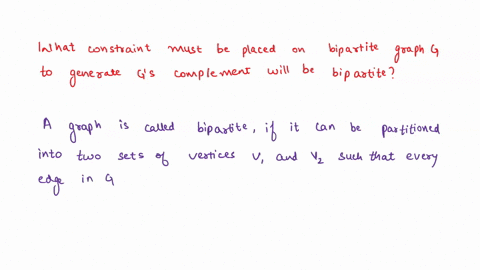 What constraint must be placed on bipartite graph G
to generate G's complement will be bipartite?
A graph is called bipartite, if it can be partitioned
into two sets of vertices V₁ and V₂ such that every
edge in G